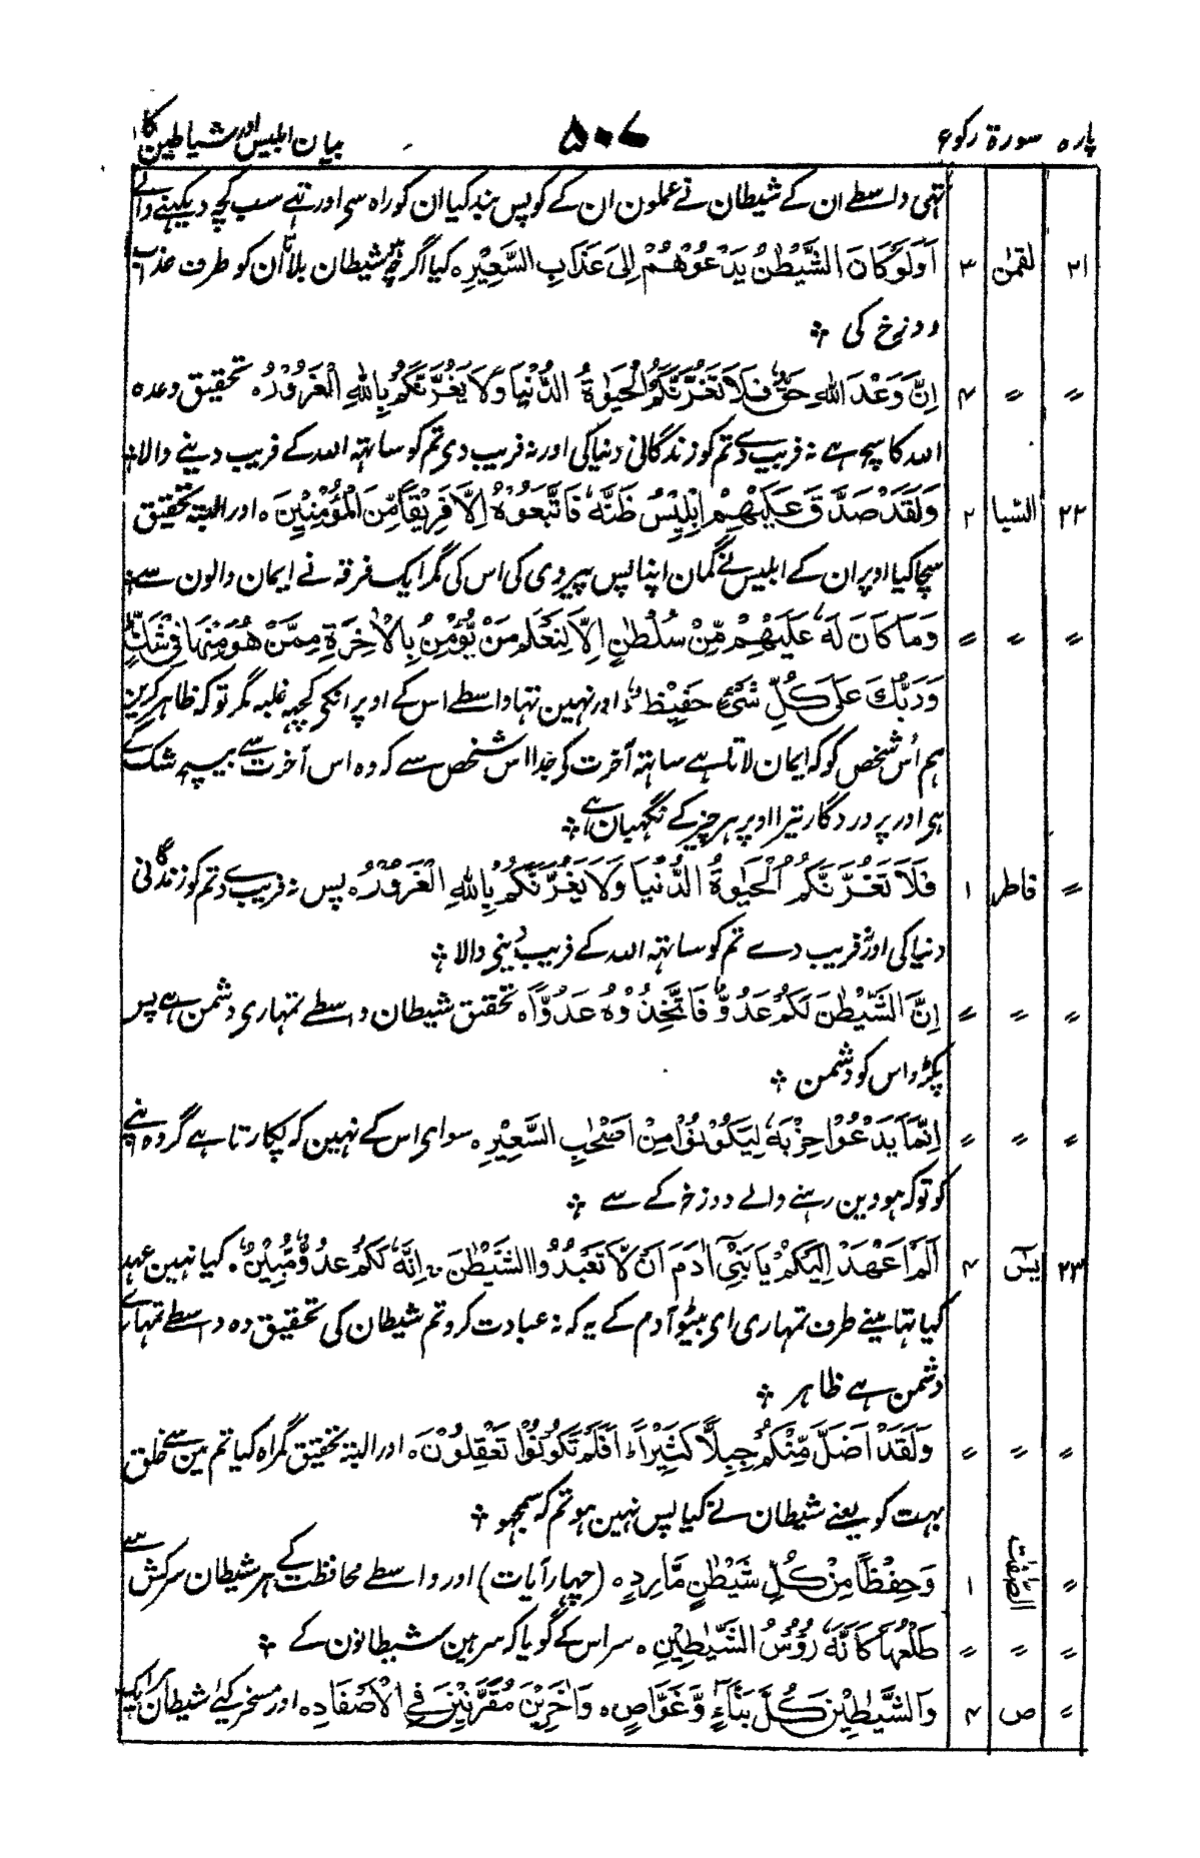 پارہ سورۃ رکوع ۵۰۷ بیان ابلیس اور شیاطین کا
تہی واسطے ان کے شیطان نے عملون ان کے کو پس بند کیا ان کو راہ سی اور تہے سب کچہ دیکہنے والے
۲۱ لقمٰن ۳ اَوَلَوْ كَانَ الشَّيْطٰنُ يَدْعُوْهُمْ اِلٰى عَذَابِ السَّعِيْرِ ہ کیا اگرچہ شیطان بلاتا ان کو طرف عذاب
دوزخ کی ؞
〃 〃 ۴ اِنَّ وَعْدَ اللّٰهِ حَقٌّ فَلَا تَغُرَّنَّكُمُ الْحَيٰوةُ الدُّنْيَا وَلَا يَغُرَّنَّكُمْ بِاللّٰهِ الْغَرُوْرُ ہ تحقیق وعدہ
اللہ کا سچ ہے نہ فریب دے تم کو زندگانی دنیا کی اور نہ فریب دی تم کو ساتہہ اللہ کے فریب دینے والا ؞
۲۲ السّبا ۲ وَلَقَدْ صَدَّقَ عَلَيْهِمْ اِبْلِيْسُ ظَنَّهٗ فَاتَّبَعُوْهُ اِلَّا فَرِيْقًا مِّنَ الْمُؤْمِنِيْنَ ہ اور البتہ تحقیق
سچا کیا اوپر ان کے ابلیس نے گمان اپنا پس پیروی کی اس کی مگر ایک فرقہ نے ایمان والون سے ؞
〃 〃 〃 وَمَا كَانَ لَهٗ عَلَيْهِمْ مِّنْ سُلْطٰنٍ اِلَّا لِنَعْلَمَ مَنْ يُّؤْمِنُ بِالْاٰخِرَةِ مِمَّنْ هُوَ مِنْهَا فِيْ شَكٍّ
وَرَبُّكَ عَلٰى كُلِّ شَيْءٍ حَفِيْظٌ ہ اور نہین تہا واسطے اس کے اوپر انکی کچہہ غلبہ مگر تو کہ ظاہر کرین
ہم اُس شخص کو کہ ایمان لاتا ہے ساتہہ آخرت کو جدا اس شخص سے کہ وہ اس آخرت سے بیچ شک کے
ہی اور پروردگار تیرا اوپر ہر چیز کے نگہبان ہے ؞
〃 فاطر ۱ فَلَا تَغُرَّنَّكُمُ الْحَيٰوةُ الدُّنْيَا وَلَا يَغُرَّنَّكُمْ بِاللّٰهِ الْغَرُوْرُ ہ پس نہ فریب دے تم کو زندگانی
دنیا کی اور نہ فریب دے تم کو ساتہہ اللہ کے فریب دینی والا ؞
〃 〃 〃 اِنَّ الشَّيْطٰنَ لَكُمْ عَدُوٌّ فَاتَّخِذُوْهُ عَدُوًّا ہ تحقیق شیطان واسطے تمہاری دشمن ہے پس
پکڑو اس کو دشمن ؞
〃 〃 〃 اِنَّمَا يَدْعُوْا حِزْبَهٗ لِيَكُوْنُوْا مِنْ اَصْحٰبِ السَّعِيْرِ ہ سوای اس کے نہین کہ پکارتا ہے گروہ اپنے
کو تو کہ ہووین رہنے والے دوزخ کے سے ؞
۲۳ یٰسٓ ۴ اَلَمْ اَعْهَدْ اِلَيْكُمْ يَا بَنِيْٓ اٰدَمَ اَنْ لَّا تَعْبُدُوا الشَّيْطٰنَ اِنَّهٗ لَكُمْ عَدُوٌّ مُّبِيْنٌ ہ کیا نہین عہد
کیا تہا مینے طرف تمہاری ای بیٹو آدم کے یہ کہ نہ عبادت کرو تم شیطان کی تحقیق وہ واسطے تمہارے
دشمن ہے ظاہر ؞
〃 〃 〃 وَلَقَدْ اَضَلَّ مِنْكُمْ جِبِلًّا كَثِيْرًا اَفَلَمْ تَكُوْنُوْا تَعْقِلُوْنَ ہ اور البتہ تحقیق گمراہ کیا تم مین سے خلق
بہت کو یعنے شیطان نے کیا پس نہین ہو تم کہ سمجہو ؞
〃 الصّٰفّٰت ۱ وَحِفْظًا مِنْ كُلِّ شَيْطٰنٍ مَّارِدٍ ہ (چہار آیات) اور واسطے محافظت کے ہر شیطان سرکش سے
〃 〃 〃 طَلْعُهَا كَاَنَّهٗ رُؤُسُ الشَّيٰطِيْنِ ہ سر اس کے گویا کہ سر ہین شیطانون کے ؞
〃 ص ۴ وَالشَّيٰطِيْنَ كُلَّ بَنَّآءٍ وَّغَوَّاصٍ ہ وَاٰخَرِيْنَ مُقَرَّنِيْنَ فِي الْاَصْفَادِ ہ اور مسخر کیے شیطان